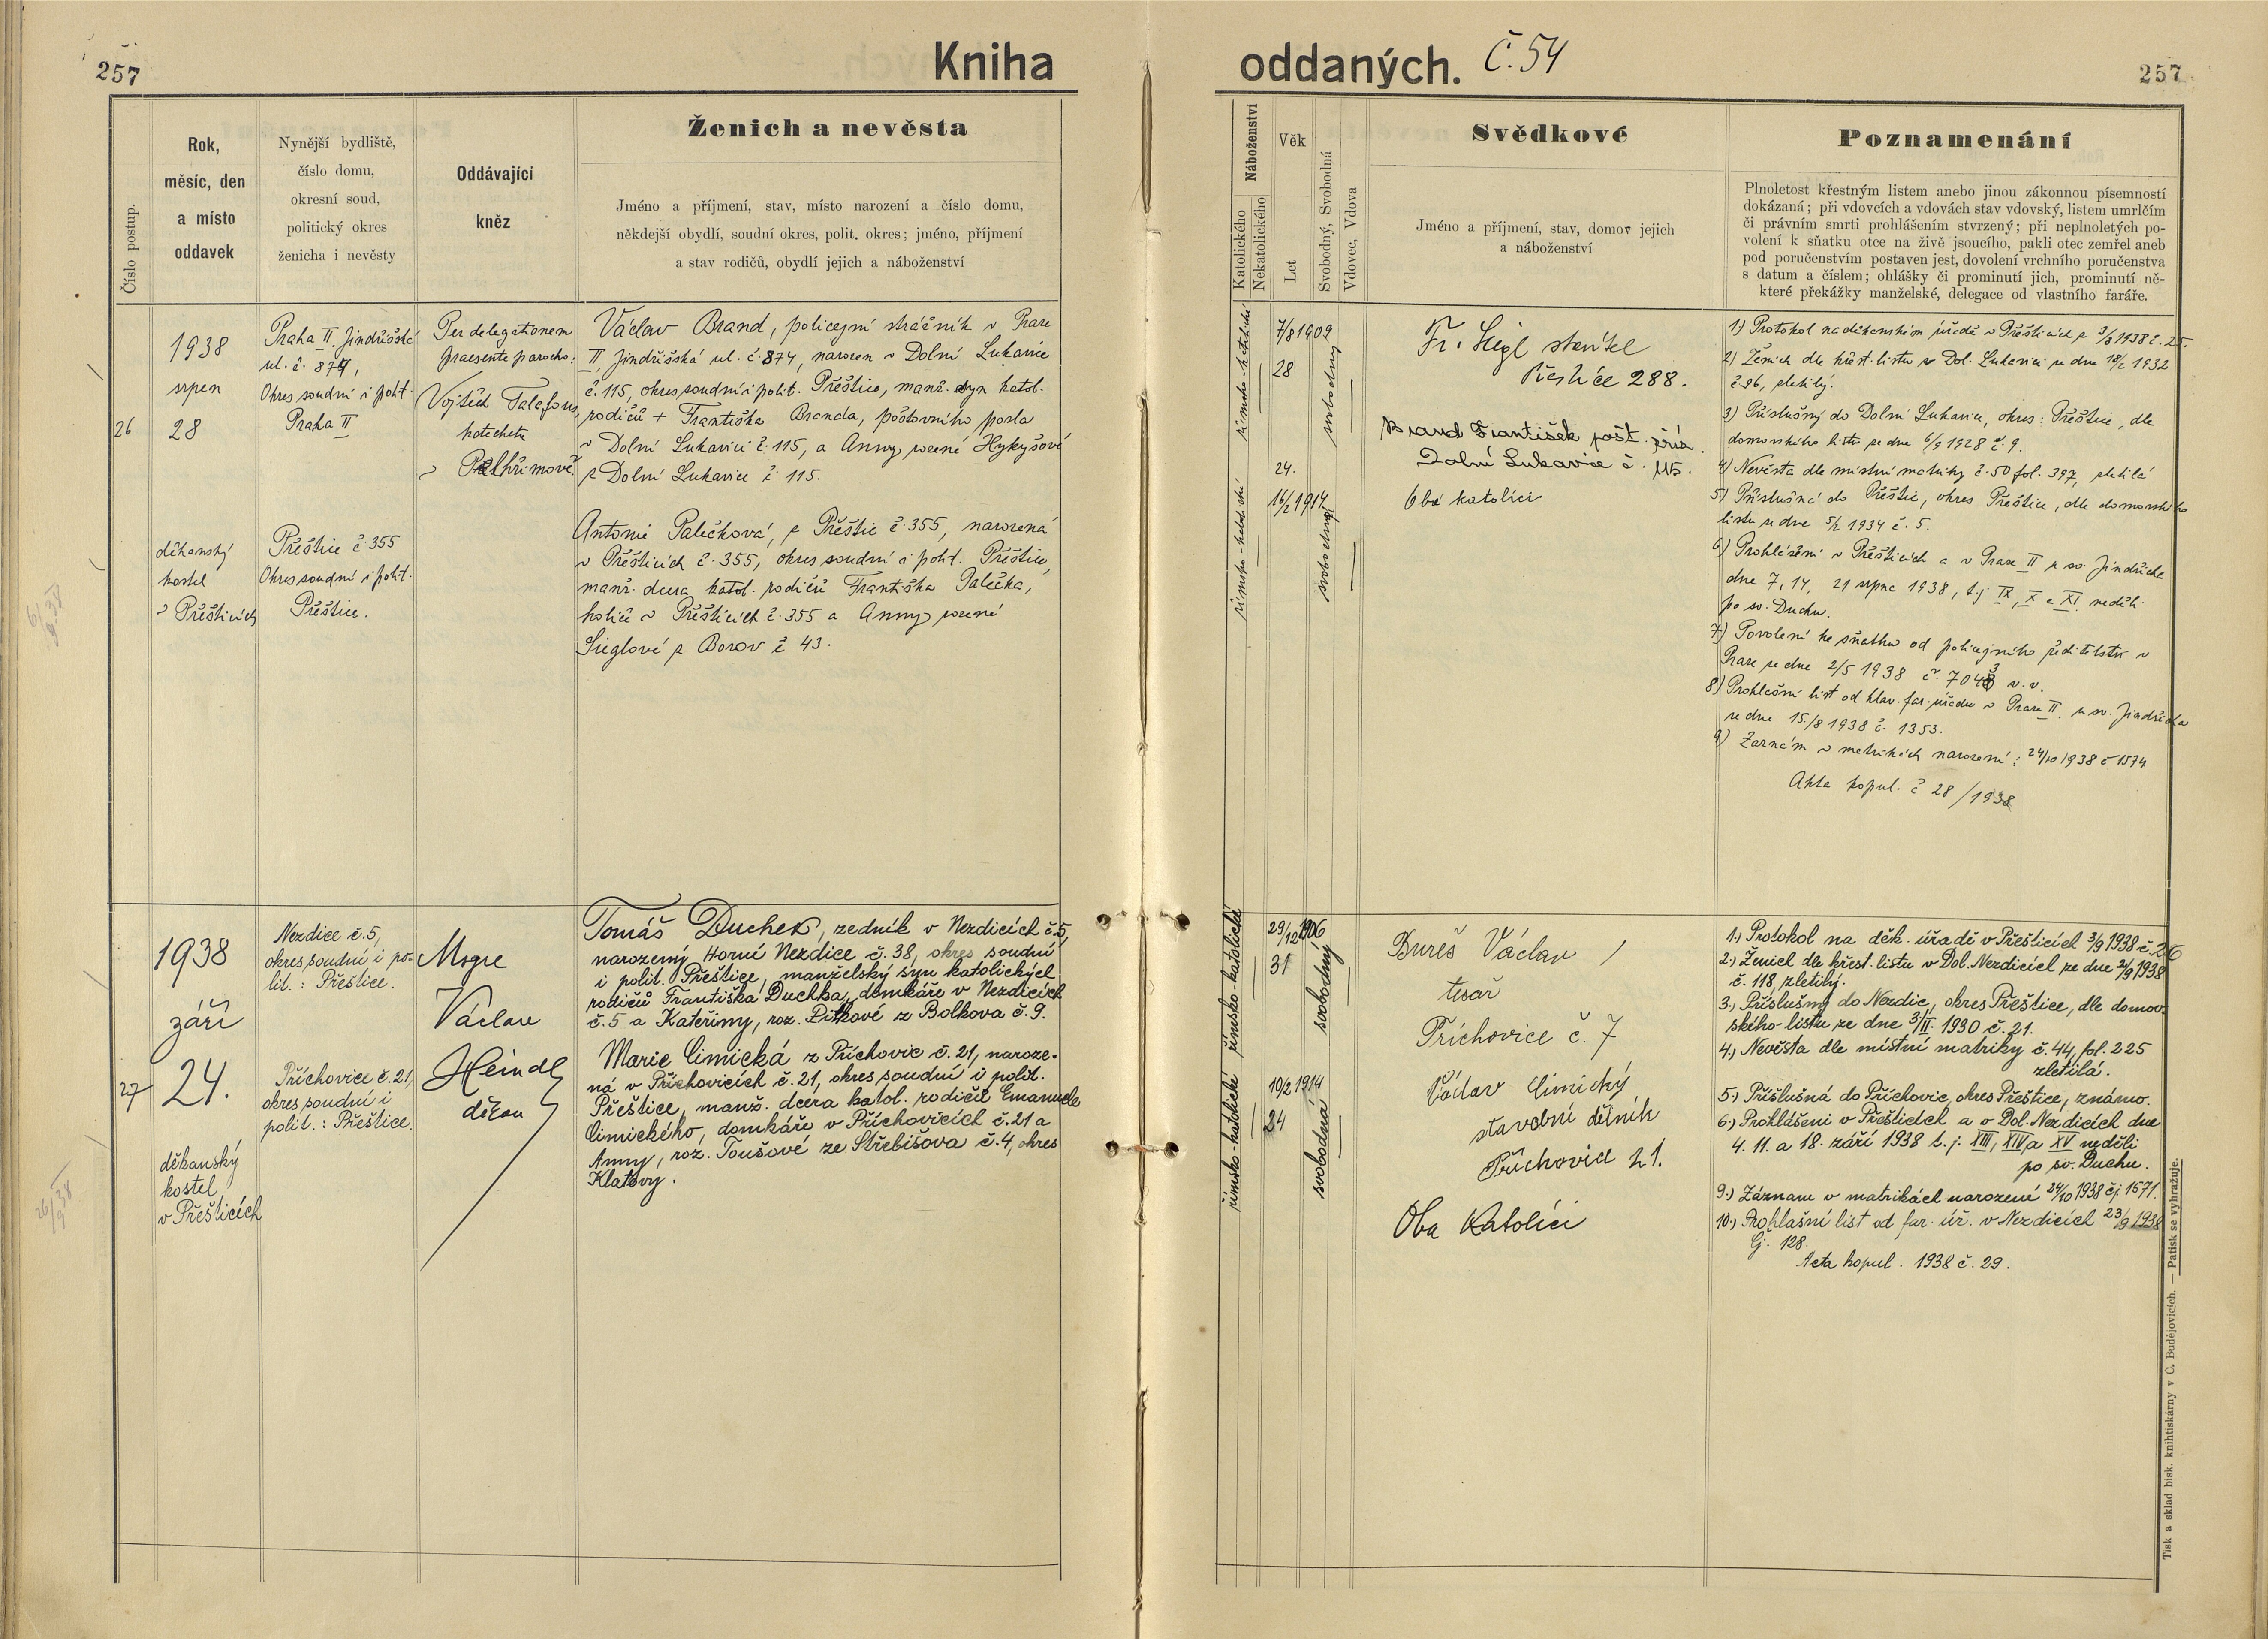 257
Kniha
Číslo postup.
Rok,
měsíc, den
a místo
oddavek
Nynější bydliště,
číslo domu,
okresní soud,
politický okres
ženicha i nevěsty
Oddávající
kněz
Ženich a nevěsta
Jméno a příjmení, stav, místo narození a číslo domu,
někdejší obydlí, soudní okres, polit. okres; jméno, příjmení
a stav rodičů, obydlí jejich a náboženství
26
1938
srpen
28
děkanský
kostel
v Přešticích
Praha II. Jindřišská
ul. č. 874,
Okres soudní i polit.
Praha II
Přeštice č. 355
Okres soudní i polit.
Přeštice.
Per delegationem
praesente parocho:
Vojtěch Talafous,
katecheta
v Pelhřimově
Václav Brand, policejní strážník v Praze
II, Jindřišská ul. č. 874, narozen v Dolní Lukavici
č. 115, okres soudní i polit. Přeštice, manž. syn katol.
rodičů + Františka Branda, poštovního posla
v Dolní Lukavici č. 115, a Anny rozené Hykyšové
z Dolní Lukavice č. 115.
Antonie Palečková, z Přeštic č. 355, narozená
v Přešticích č. 355, okres soudní i polit. Přeštice,
manž. dcera katol. rodičů Františka Palečka,
holiče v Přešticích č. 355 a Anny rozené
Sieglové z Borov č. 43.
6/9.38
27
1938
září
24.
děkanský
kostel
v Přešticích
Nezdice č. 5,
okres soudní i po-
lit.: Přeštice.
Příchovice č. 21,
okres soudní i
polit.: Přeštice.
Msgre
Václav
Heindl
děkan
Tomáš Duchek, zedník v Nezdicích č. 5,
narozený Horní Nezdice č. 38, okres soudní
i polit. Přeštice, manželský syn katolických
rodičů Františka Duchka, domkáře v Nezdicích
č. 5 a Kateřiny, roz. Pitkové z Bolkova č. 9.
Marie Cimická z Příchovic č. 21, naroze-
ná v Příchovicích č. 21, okres soudní i polit.
Přeštice, manž. dcera katol. rodičů Emanuele
Cimického, domkáře v Příchovicích č. 21 a
Anny, roz. Toušové ze Střebišova č. 4, okres
Klatovy.
26/9 38
oddaných. Č. 54
257
Náboženství
Katolického
Nekatolického
Věk
Let
Svobodný, Svobodná
Vdovec, Vdova
Svědkové
Jméno a příjmení, stav, domov jejich
a náboženství
Poznamenání
Plnoletost křestným listem anebo jinou zákonnou písemností
dokázaná; při vdovcích a vdovách stav vdovský, listem umrlčím
či právním smrti prohlášením stvrzený; při neplnoletých po-
volení k sňatku otce na živě jsoucího, pakli otec zemřel aneb
pod poručenstvím postaven jest, dovolení vrchního poručenstva
s datum a číslem; ohlášky či prominutí jich, prominutí ně-
které překážky manželské, delegace od vlastního faráře.
římsko-katolické
7/8 1909
28
svobodný
římsko-katolické
24.
16/2 1914
svobodná
Fr. Siegl stavitel
Přeštice 288.
Brand František pošt. zříz.
Dolní Lukavice č. 115.
Oba katolíci
1) Protokol na děkanském úřadě v Přešticích z 3/8 1938 č. 25.
2) Ženich dle křest. listu z Dol. Lukavici ze dne 18/2 1932
č. 26, zletilý.
3) Příslušný do Dolní Lukavice, okres: Přeštice, dle
domovského listu ze dne 6/9 1928 č. 9.
4) Nevěsta dle místní matriky č. 50 fol. 397, zletilá
5) Příslušná do Přeštic, okres Přeštice, dle domovského
listu ze dne 5/2 1934 č. 5.
6) Prohlášení v Přešticích a v Praze II u sv. Jindřicha
dne 7, 14, 21 srpna 1938, t.j. IX, X a XI. neděli
po sv. Duchu.
7) Povolení ke sňatku od policejního ředitelství v
Praze ze dne 2/5 1938 č. 7043 v. v.
8) Prohlašní list od hlav. far. úřadu v Praze II. u sv. Jindřicha
ze dne 15/8 1938 č. 1353.
9) Záznam v matrikách narození: 24/10 1938 č 1574
Akta kopul. č 28/1938
římsko-katolické
29/12 1906
31
svobodný
římsko-katolické
10/2 1914
24
svobodná
Bureš Václav
tesař
Příchovice č. 7
Václav Cimický
stavební dělník
Příchovice 21.
Oba Katolíci
1.) Protokol na děk. úřadě v Přešticích 3/9 1938 č. 26
2.) Ženich dle křest. listu v Dol. Nezdicích ze dne 2/9 1938
č. 118, zletilý.
3.) Příslušný do Nezdic, okres Přeštice, dle domov-
ského listu ze dne 3/II. 1930 č. 21.
4.) Nevěsta dle místní matriky č. 44, fol. 225
zletilá.
5.) Příslušná do Příchovic, okres Přeštice, známo.
6.) Prohlášeni v Přešticích a v Dol. Nezdicích dne
4. 11. a 18. září 1938 t. j. XIII, XIV a XV neděli
po sv. Duchu.
9.) Záznam v matrikách narozené 24/10 1938 čj 1571.
10.) Prohlašní list od far. úř. v Nezdicích 23/9 1938
čj. 128.
Acta kopul. 1938 č. 29.
Tisk a sklad bisk. knihtiskárny v Č. Budějovicích. — Patisk se vyhražuje.